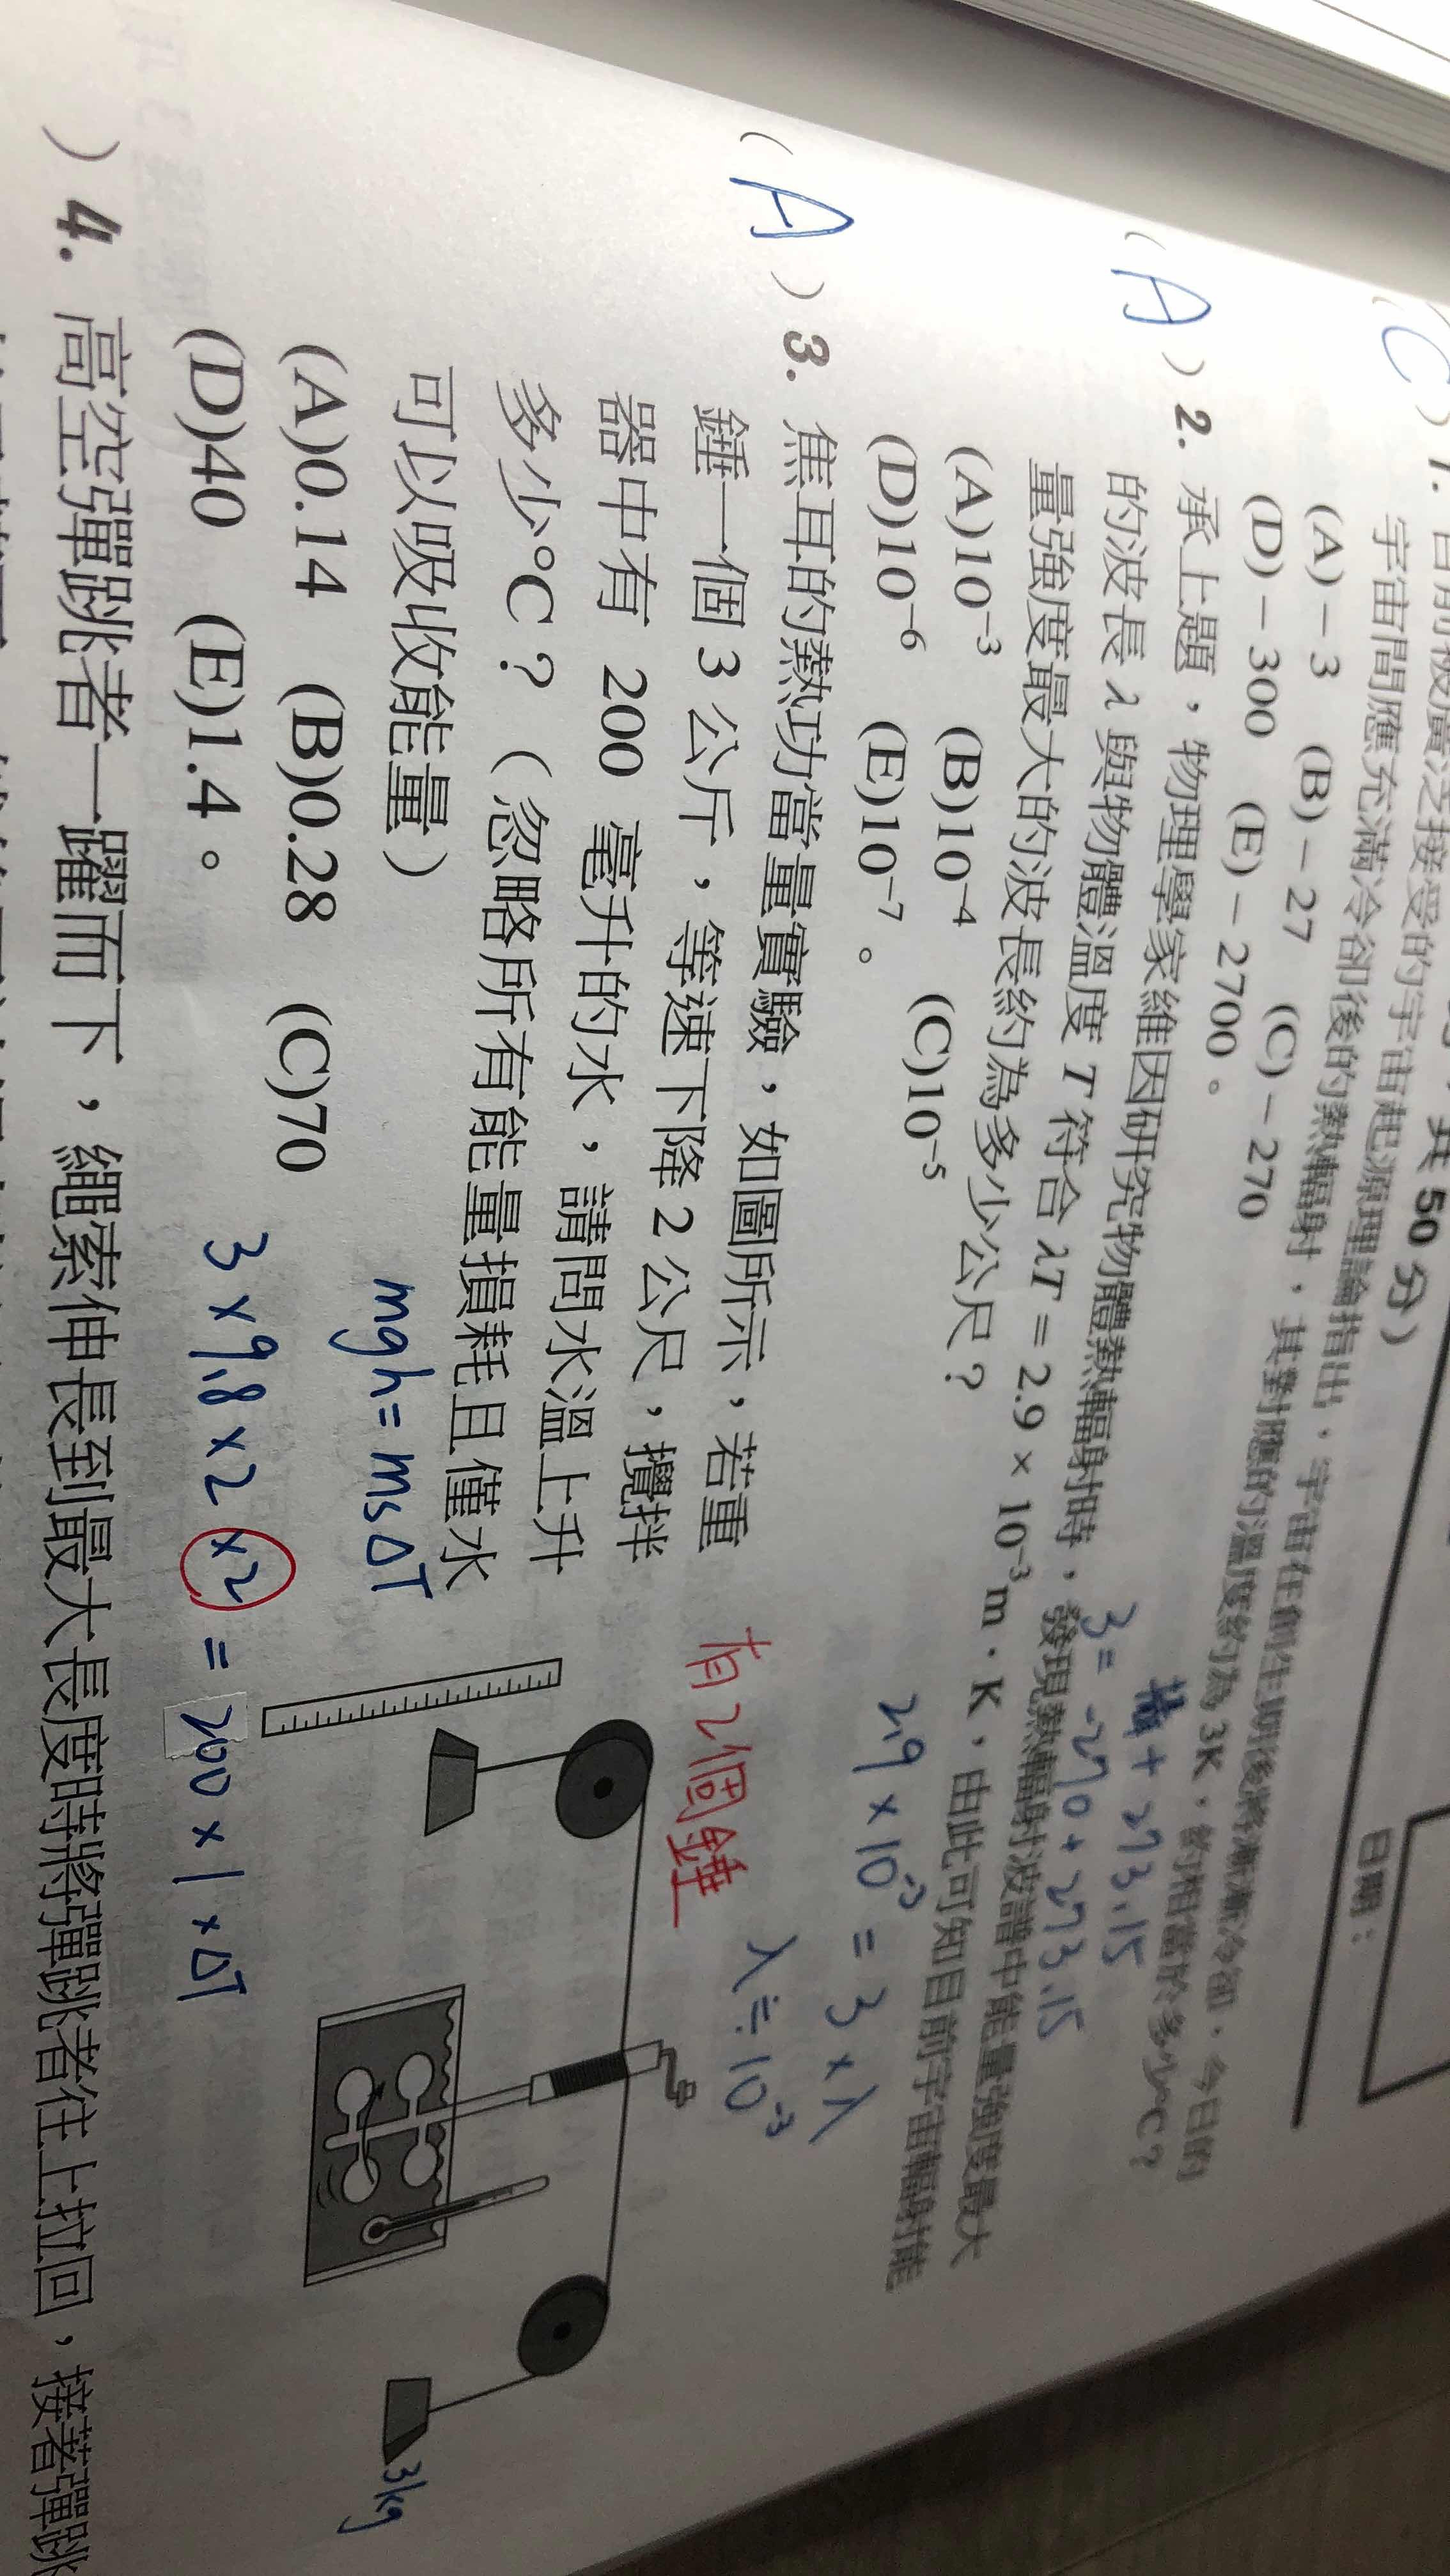 共 50 分）
日期：
(C) 1. 目前被廣泛接受的宇宙起源理論指出，宇宙在創生期後將漸漸冷卻，今日的
宇宙間應充滿冷卻後的熱輻射，其對應的溫度約為 3K，約相當於多少°C？
(A)－3 (B)－27 (C)－270
(D)－300 (E)－2700。
+ 273.15
3 = -270 + 273.15
(A) 2. 承上題，物理學家維因研究物體熱輻射時，發現熱輻射波譜中能量強度最大
的波長 λ 與物體溫度 T 符合 λT = 2.9 × 10⁻³ m · K，由此可知目前宇宙輻射能
量強度最大的波長約為多少公尺？
(A)10⁻³ (B)10⁻⁴ (C)10⁻⁵
(D)10⁻⁶ (E)10⁻⁷。
2.9 × 10⁻³ = 3 × λ
λ ≒ 10⁻³
(A) 3. 焦耳的熱功當量實驗，如圖所示，若重
錘一個 3 公斤，等速下降 2 公尺，攪拌
器中有 200 毫升的水，請問水溫上升
多少°C？（忽略所有能量損耗且僅水
可以吸收能量）
(A)0.14 (B)0.28 (C)70
(D)40 (E)1.4。
有2個錘
mgh = msΔT
3 × 9.8 × 2 ×2 = 200 × 1 × ΔT
3kg
) 4. 高空彈跳者一躍而下，繩索伸長到最大長度時將彈跳者往上拉回，接著彈跳